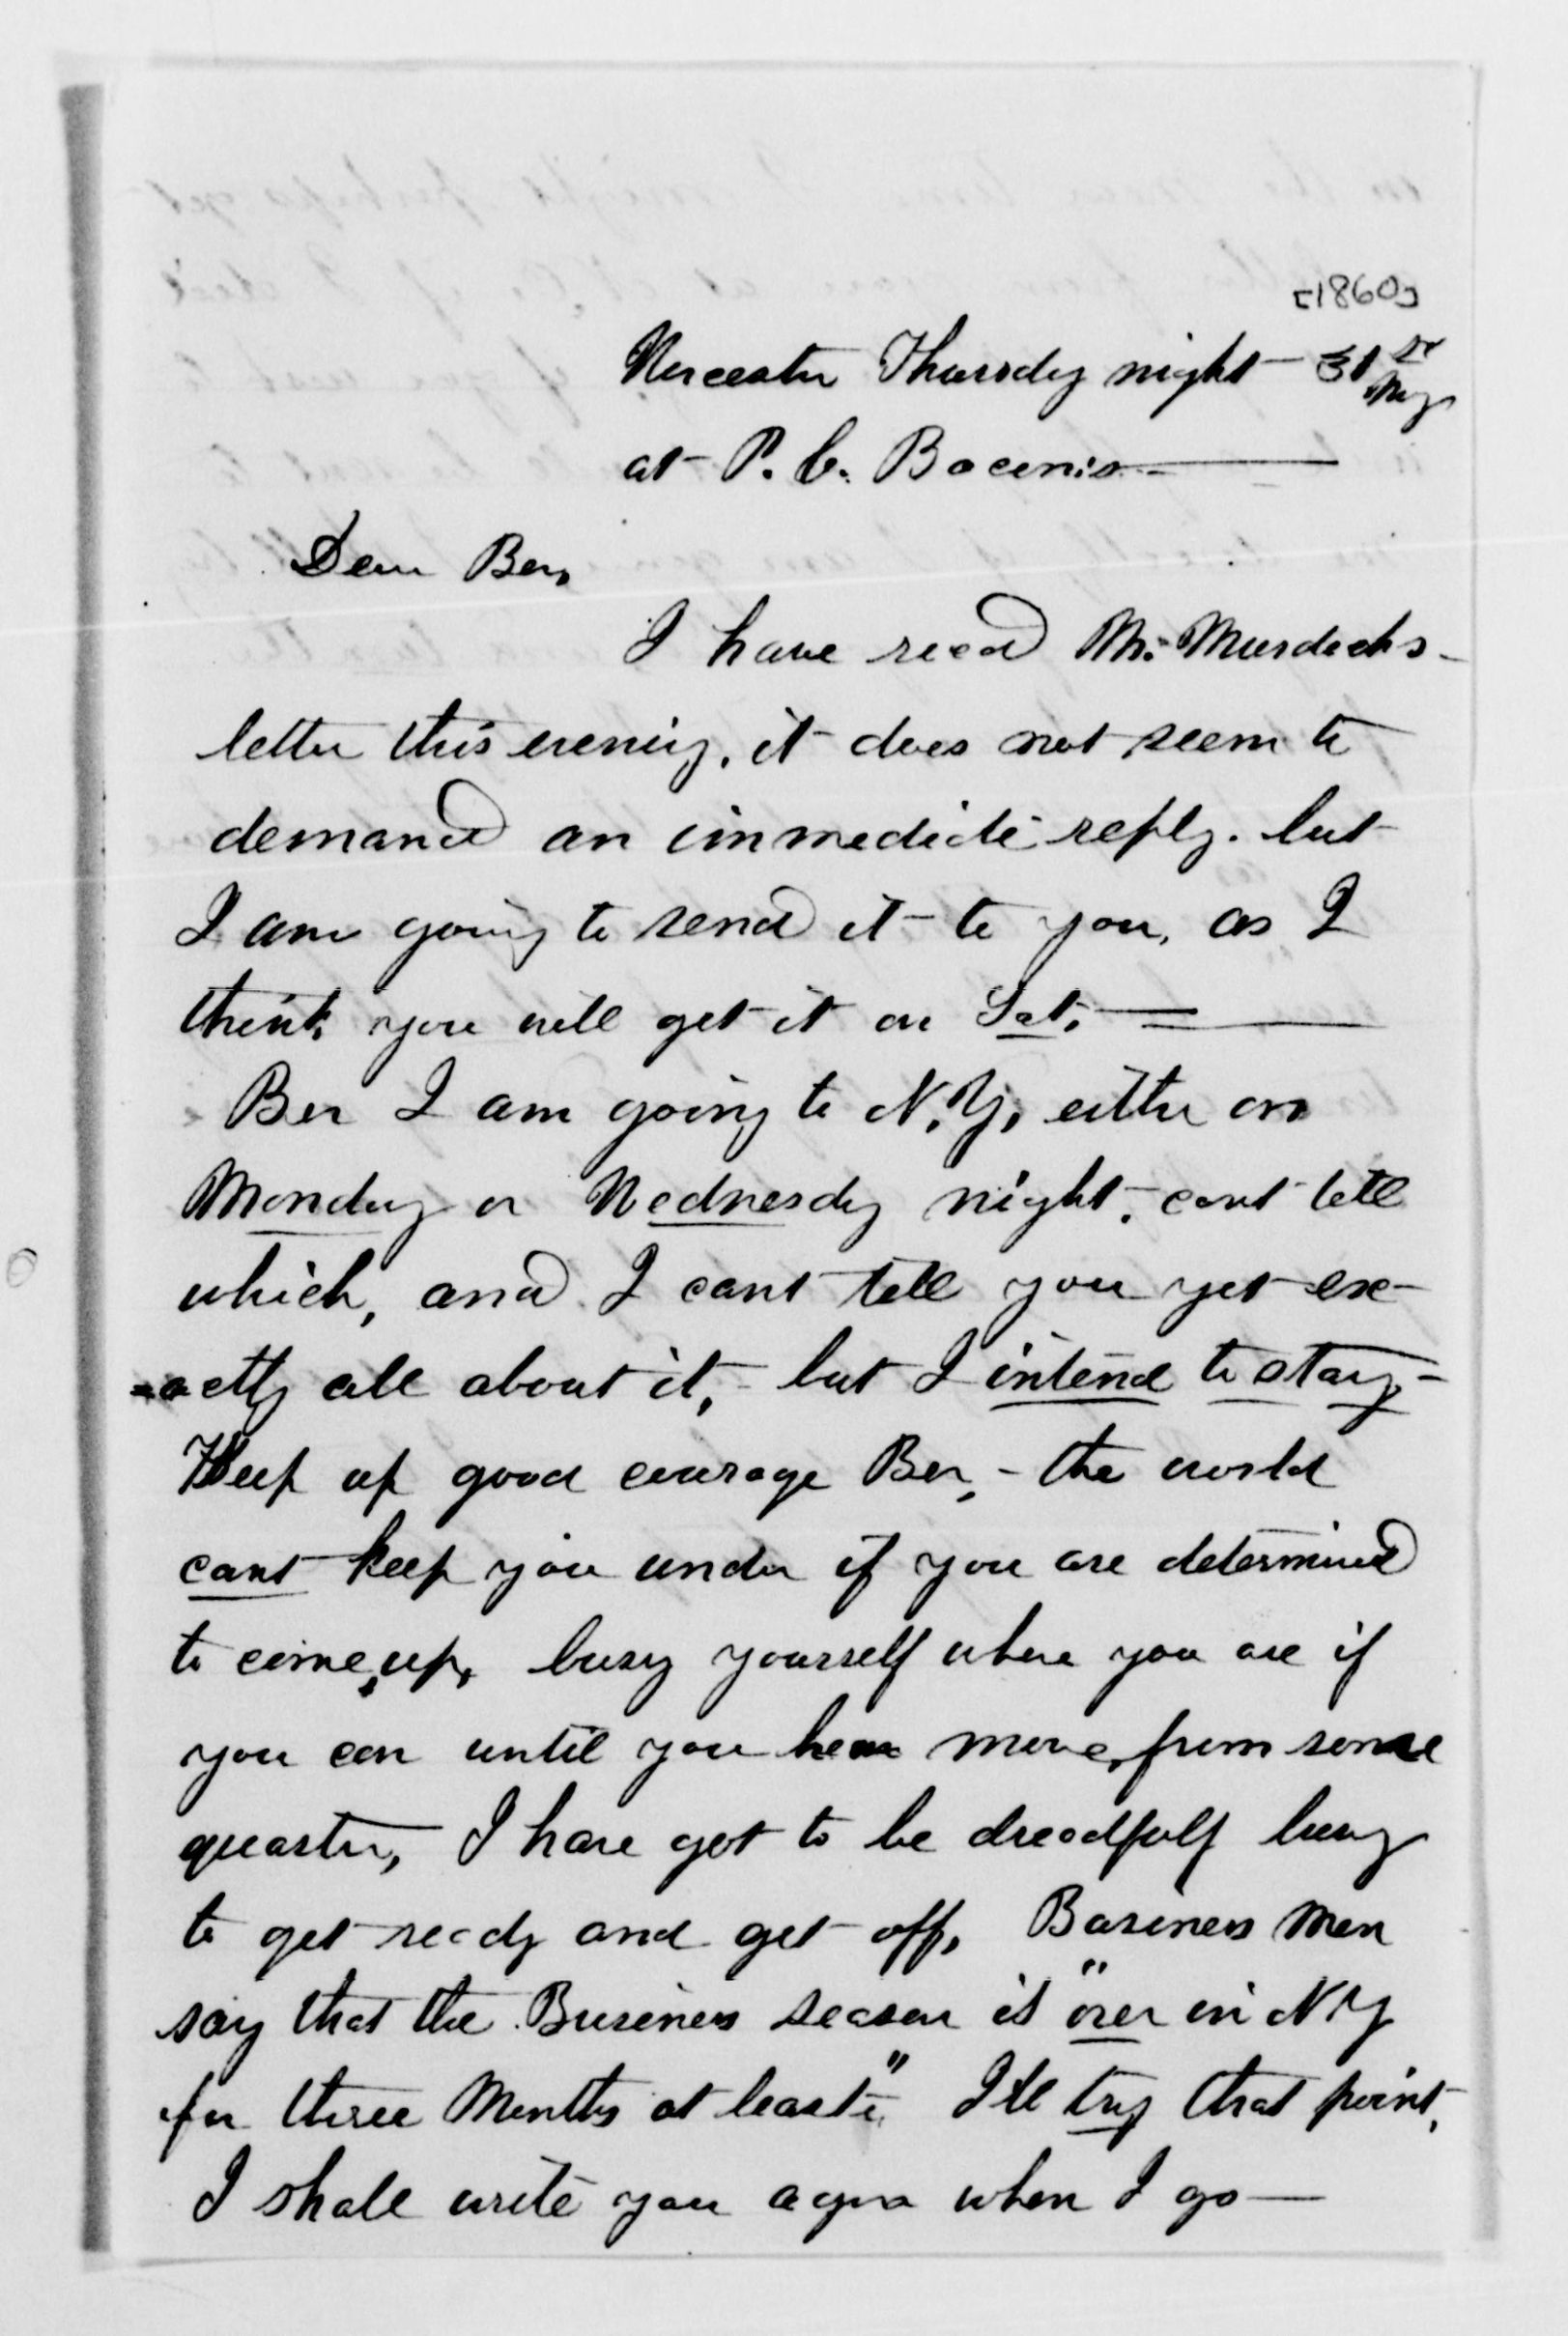 [1860]
Worcester Thursday night - 31st May
at P. C. Bacons. —
Dear Ber,
I have recd Mr. Murdocks -
letter this evening, it does not seem to
demand an immediate reply. but
I am going to send it to you, as I
think you will get it on Sat. —
Ber I am going to N.Y. either on
Monday or Wednesday night, cant tell
which, and I cant tell you yet ex-
-actly all about it, - but I intend to stay, -
Keep up good courage Ber, - the world
cant keep you under if you are determined
to come up, busy yourself where you are if
you can until you hear more from some
quarter, I have got to be dreadfull busy
to get ready and get off, Business Men
say that the Business season is "over in N Y
for three Months at least," I'll try that point,
I shall write you again when I go —